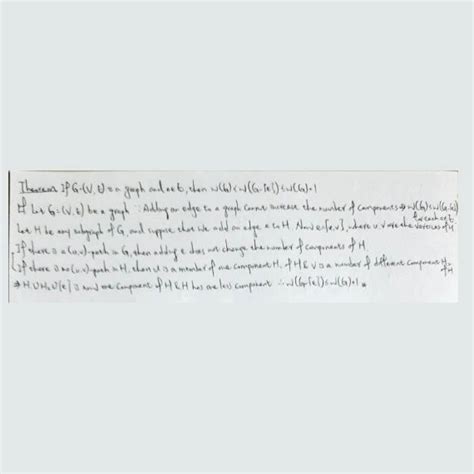 Theorem If G=(V, E) is a graph and e∈E, then w(G)≤w(G-{e})≤w(G)+1
Pf Let G=(V, E) be a graph ∵ Adding an edge to a graph cannot increase the number of components ⇒ w(G)≤w(G-{e})
for each e∈E
Let H be any subgraph of G, and suppose that we add an edge e to H. Now e={u,v}, where u, v are the vertices of H
If there is a (u,v)-path in G, then adding e does not change the number of components of H
If there is no (u,v)-path in H, then u is a member of one component H₁ of H & v is a member of different component H₂ of H
⇒ H₁∪H₂∪{e} is now one component of H & H has one less component ∴ w(G-{e})≤w(G)+1